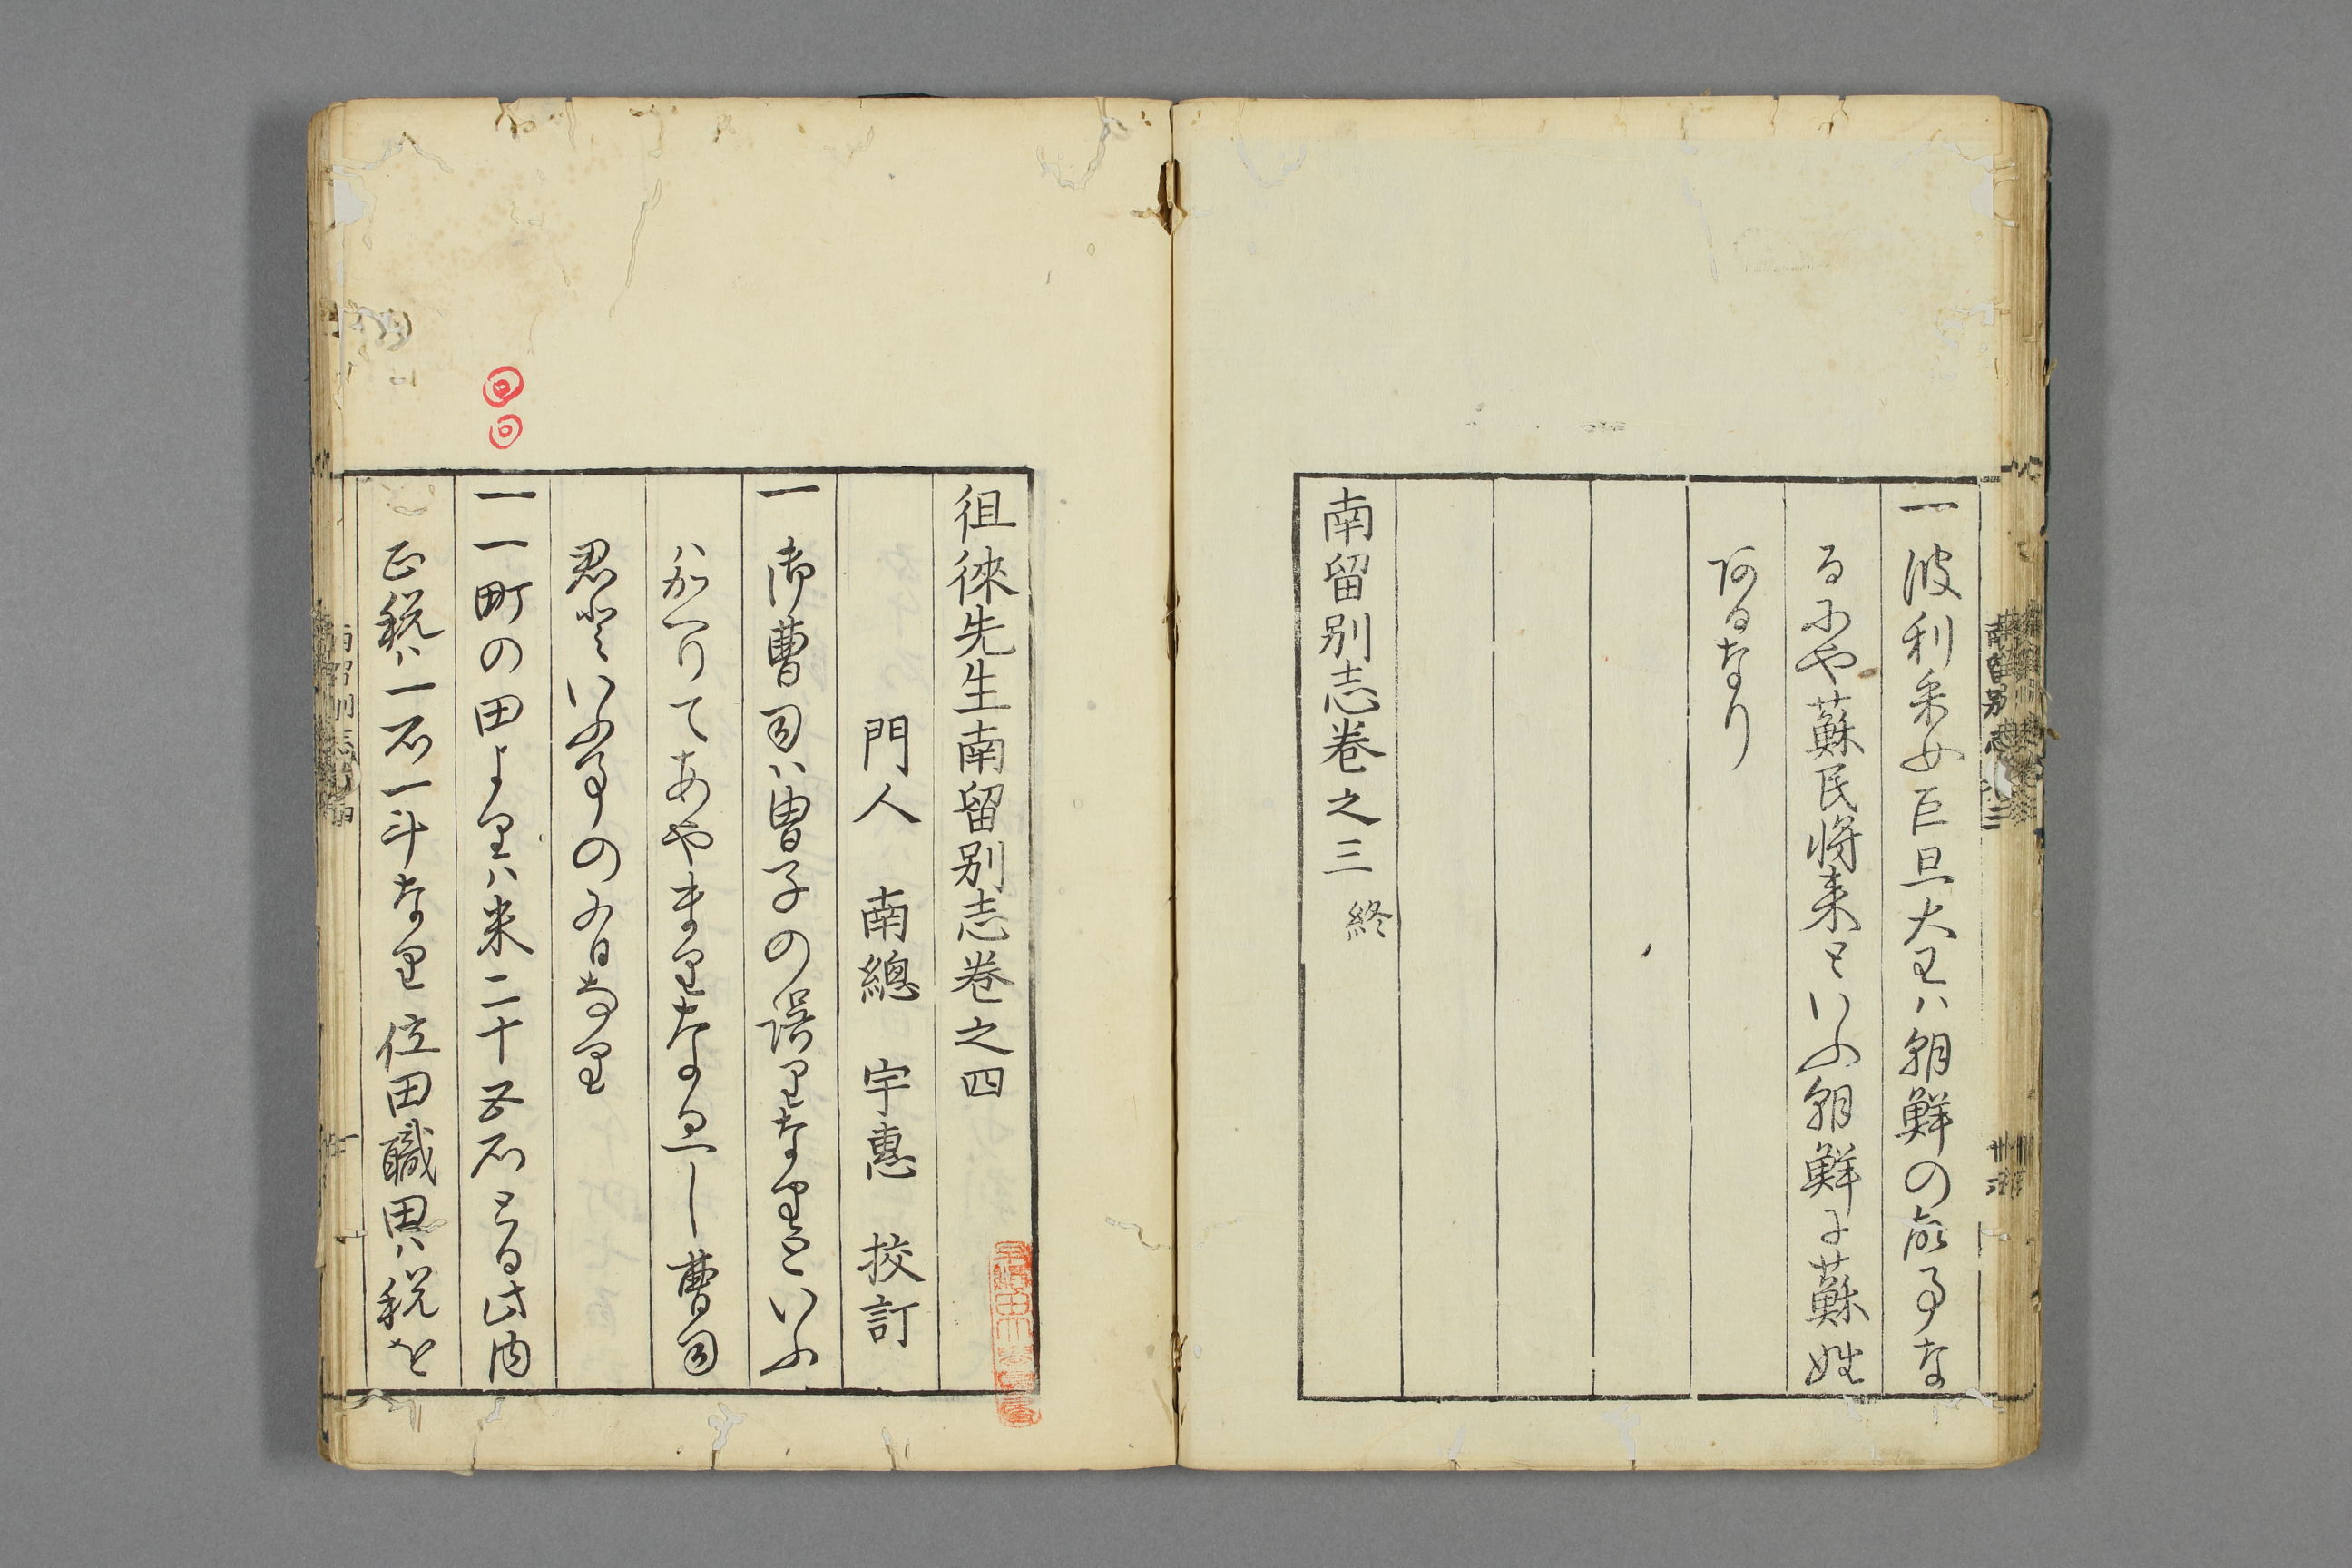 一波利采女巨旦大王ハ朝鮮の故事な
るにや蘇民将来といふ朝鮮に蘇姓
あるなり
南留別志巻之三 終
南留別志 三
徂徠先生南留別志巻之四
門人 南總 宇惠 挍訂
一御曹司ハ曹子の誤りなりといふ
ハかへりてあやまりなるへし曹司
君といふ事のなり
一一町の田よりハ米二十五石とる此内
正税ハ一石一斗なり位田職田ハ税を